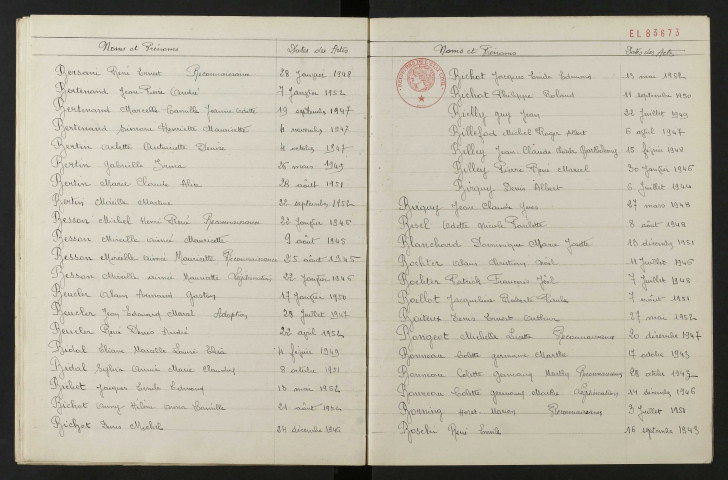 Noms et Prénoms Dates des Actes
Bersani René Ernest Reconnaissance 28 Janvier 1948
Bertenand Jean Pierre André 7 Janvier 1952
Bertenand Marcelle Camille Jeanne Odette 19 septembre 1947
Bertenand Simone Henriette Mauricette 4 novembre 1947
Bertin Arlette Antoinette Denise 4 octobre 1947
Bertin Gabrielle 26 mars 1949
Bertin Marie Claude Alice 28 août 1951
Bertin Mireille Martine 22 septembre 1952
Besson Michel Henri René Reconnaissance 22 Janvier 1946
Besson Mireille Aimée Mauricette 9 août 1945
Besson Mireille Aimée Mauricette Reconnaissance 25 août 1945
Besson Mireille Aimée Mauricette Légitimation 22 Janvier 1946
Beucler Alain Armand Gaston 17 Janvier 1950
Beucler Jean Edouard Marcel Adoption 28 Juillet 1947
Beucler René Denis André 22 avril 1952
Bidal Eliane Marcelle Louise 4 février 1949
Bidal Sylvia Annie Marie Claudine 8 octobre 1951
Bichet Jacques Emile Edmond 13 mai 1952
Bichot Anny Hélène Marie Camille 21 août 1952
Bichot Denis Michel 24 décembre 1946
EL 83673
Noms et Prénoms Dates des Actes
Bichot Jacques Emile Edmond 13 mai 1952
Bichot Philippe Roland 11 septembre 1950
Billy Guy Jean 22 Juillet 1949
Billefod Michel Roger Albert 6 avril 1947
Billey Jean Claude 15 février 1948
Billey Pierre René Marcel 30 Janvier 1946
Birguy Denis Albert 6 Juillet 1944
Birguy Jean Claude Yves 27 mars 1948
Bisel Odette Nicole Paulette 8 août 1948
Blanchard Dominique Marie Josette 13 décembre 1951
Bochter Alain Christian Noël 11 Juillet 1946
Bochter Patrick François Joël 7 Juillet 1948
Boillot Jacqueline Paule 7 août 1951
Boiteux Denis Ernest Arthur 27 mai 1952
Bongeot Michelle Lucette Reconnaissance 20 décembre 1947
Bonneau Colette Germaine Marthe 17 octobre 1943
Bonneau Colette Germaine Reconnaissance 28 octobre 1943
Bonneau Colette Germaine Marthe Légitimation 14 décembre 1946
Bonning Horst Marian Reconnaissance 3 Juillet 1951
Boschi René Emile 16 septembre 1949